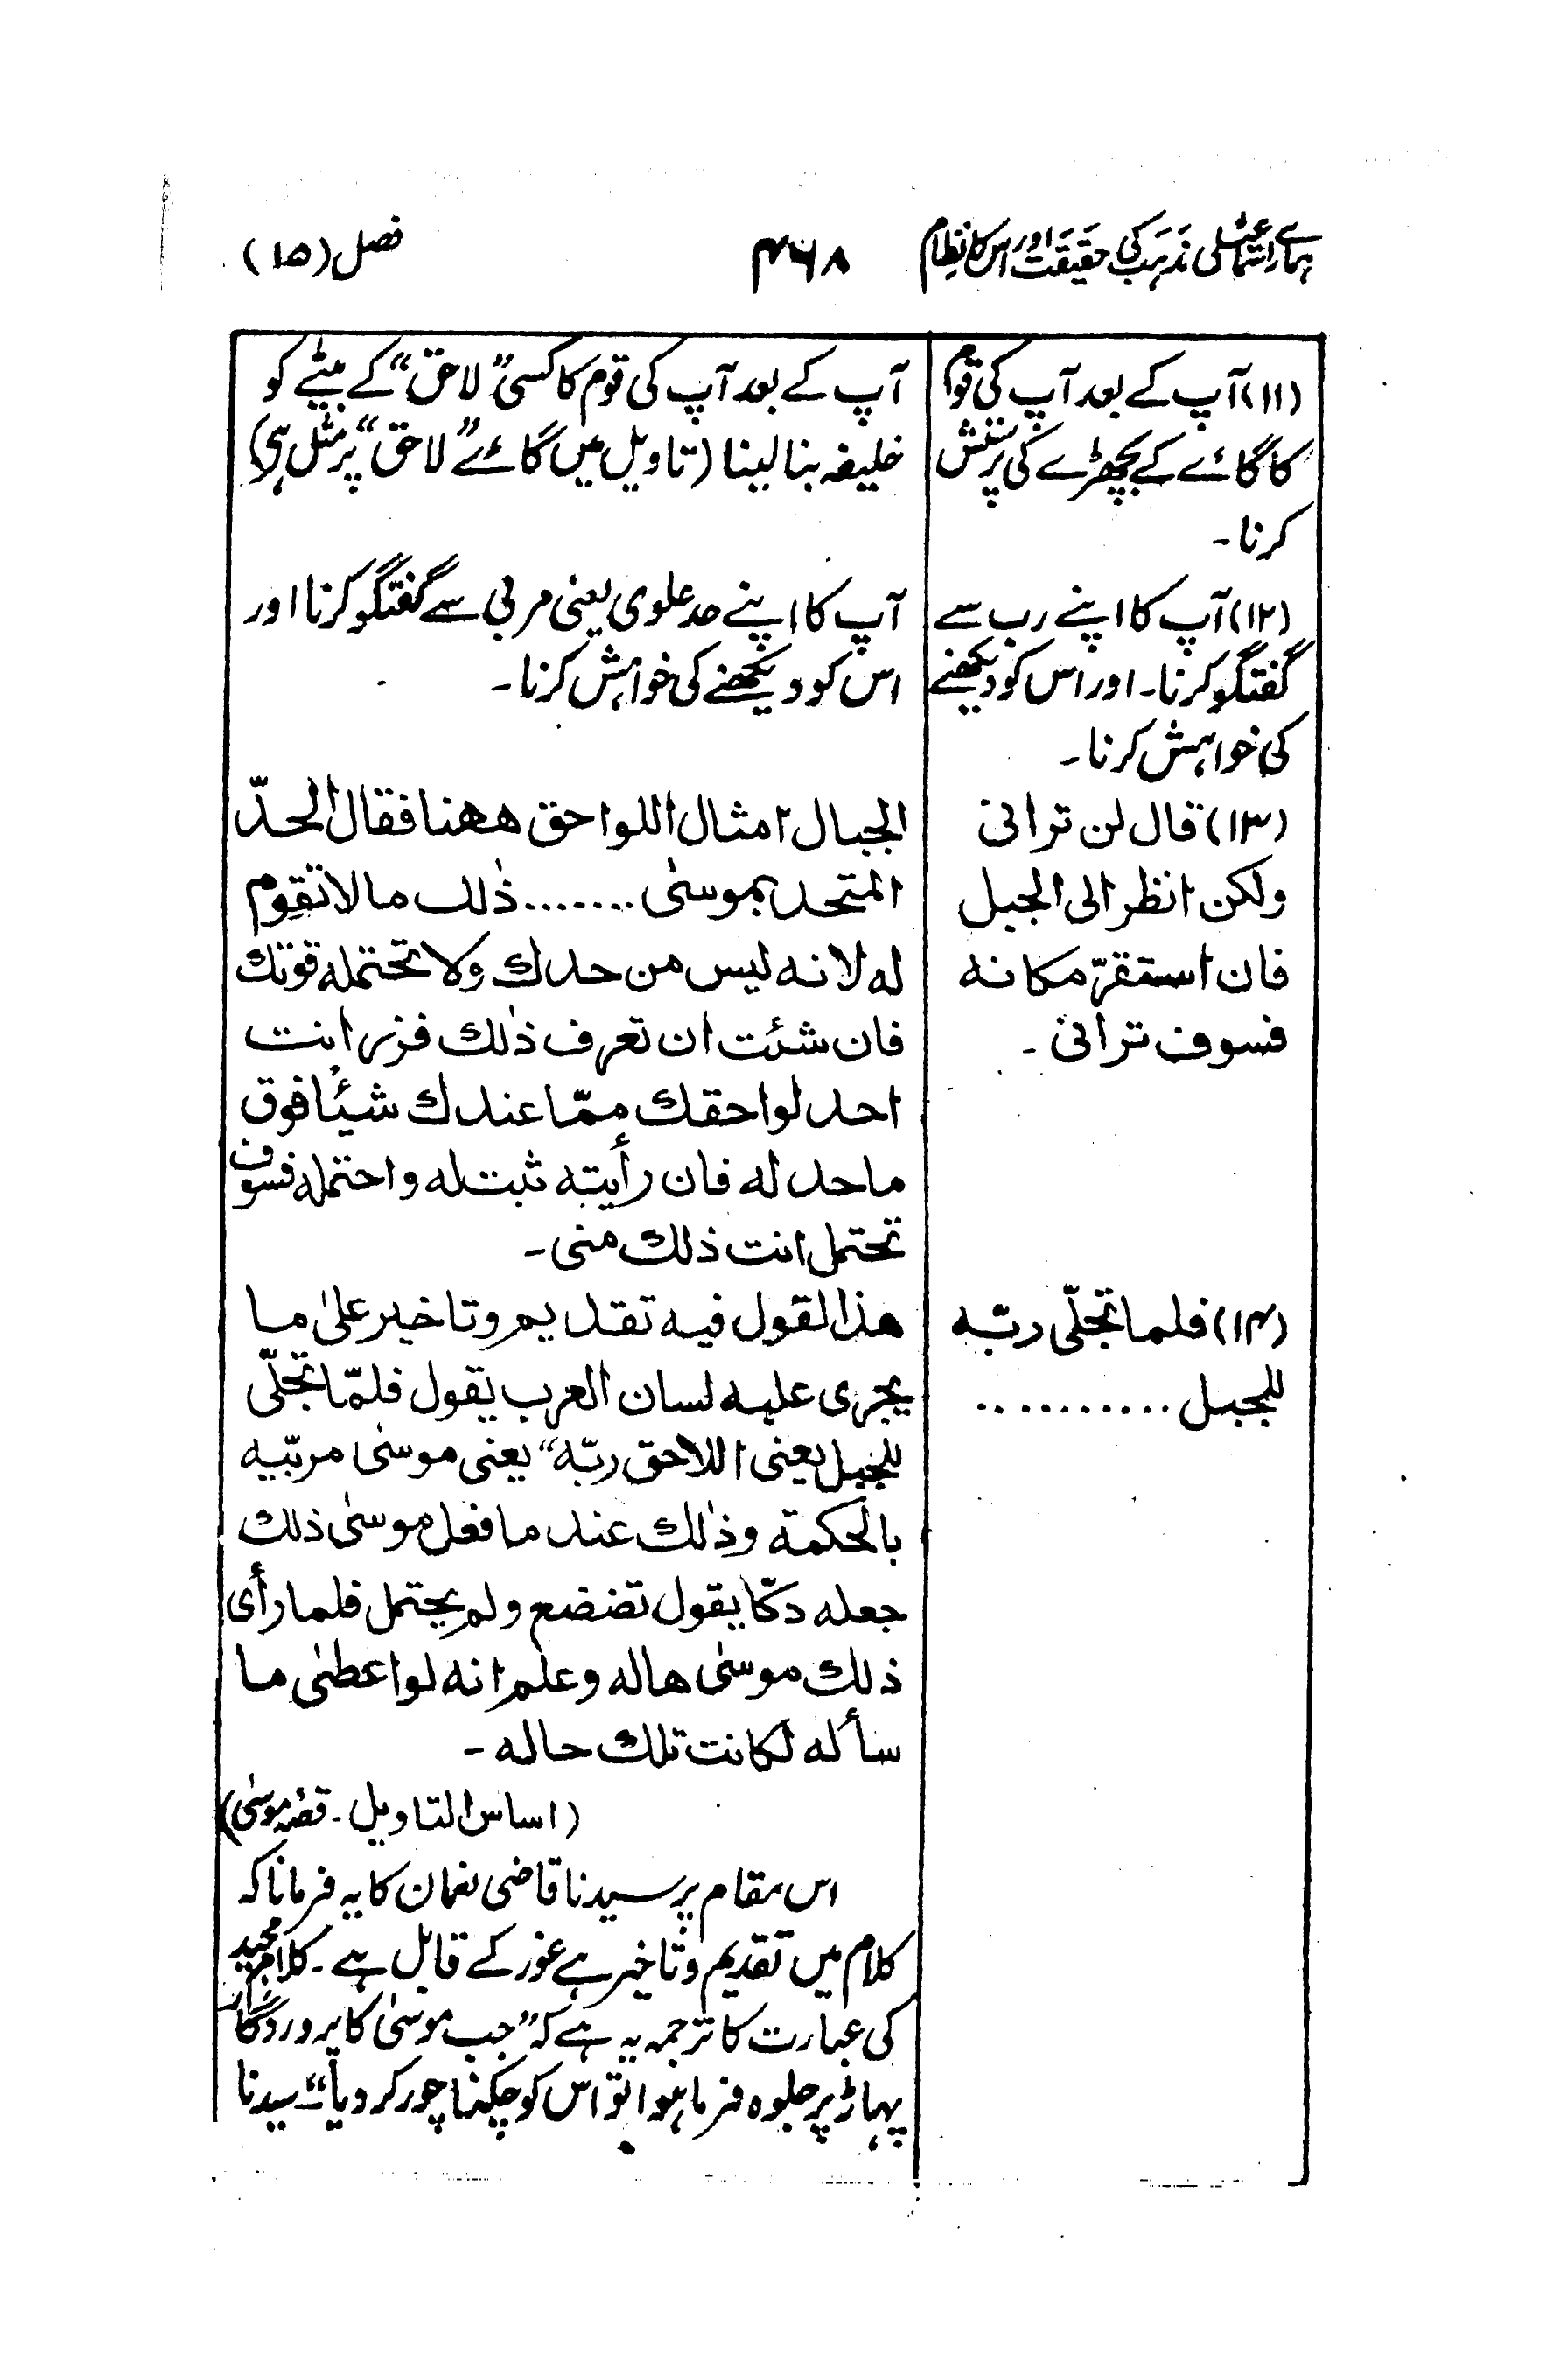 ہمارے اسماعیلی مذہب کی حقیقت اور اس کا نظام
۴۶۸
فصل (۱۵)
(۱۱) آپ کے بعد آپ کی قوم
کا گائے کے بچھڑے کی پرستش
کرنا۔
آپ کے بعد آپ کی قوم کا کسی ”لاحق“ کے بیٹے کو
خلیفہ بنا لینا (تاویل میں گائے ”لاحق“ پر مثل ہے)
(۱۲) آپ کا اپنے رب سے
گفتگو کرنا۔ اور اس کو دیکھنے
کی خواہش کرنا۔
آپ کا اپنے حد علوی یعنی مربی سے گفتگو کرنا اور
اس کو دیکھنے کی خواہش کرنا۔
(۱۳) قال لن ترانی
ولکن انظر الی الجبل
فان استقرّ مکانه
فسوف ترانی۔
الجبال امثال اللواحق ههنا فقال الحدّ
المتحد بموسیٰ ....... ذٰلك ما لا تقوم
له لانه لیس من حدك ولا تحتمله قوتك
فان شئت ان تعرف ذٰلك فزر انت
احد لواحقك ممّا عندك شیئًا فوق
ما حد له فان رأیته ثبت له واحتمله فسوف
تحتمل انت ذلك منی۔
(۱۴) فلما تجلّی ربّه
للجبل ...........
هذا القول فیه تقدیم وتاخیر علیٰ ما
یجری علیه لسان العرب یقول فلمّا تجلّی
للجبل یعنی اللاحق ربّه“ یعنی موسیٰ مربّیه
بالحکمة وذٰلك عند ما فعل موسیٰ ذلك
جعله دكّا یقول تضضع ولم یحتمل فلما رأی
ذلك موسیٰ هاله وعلم انه لو اعطیٰ ما
سأله لکانت تلك حاله۔
(اساس التاویل۔ قصّہ موسیٰ)
اس مقام پر سیدنا قاضی نعمان کا یہ فرمانا کہ
کلام میں تقدیم و تاخیر ہے غور کے قابل ہے۔ کلام مجید
کی عبارت کا ترجمہ یہ ہے کہ ”جب موسیٰ کا پروردگار
پہاڑ پر جلوہ فرما ہوا تو اس کو چکنا چور کر دیا“ سیدنا